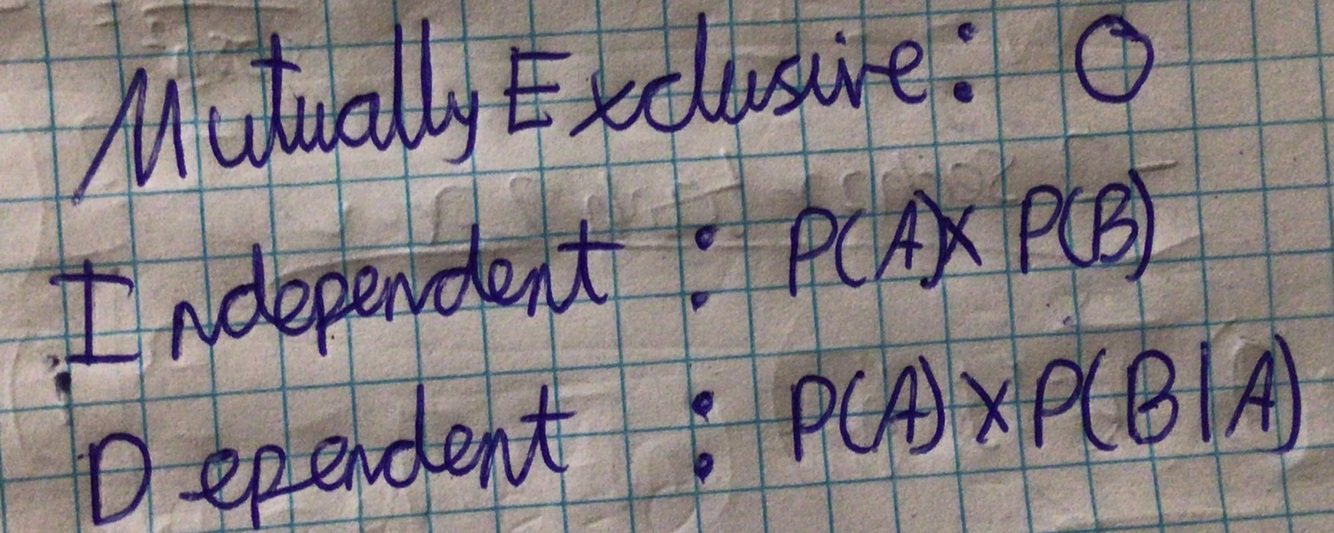 Mutually Exclusive: 0
Independent : P(A)X P(B)
Dependent : P(A) X P(B|A)